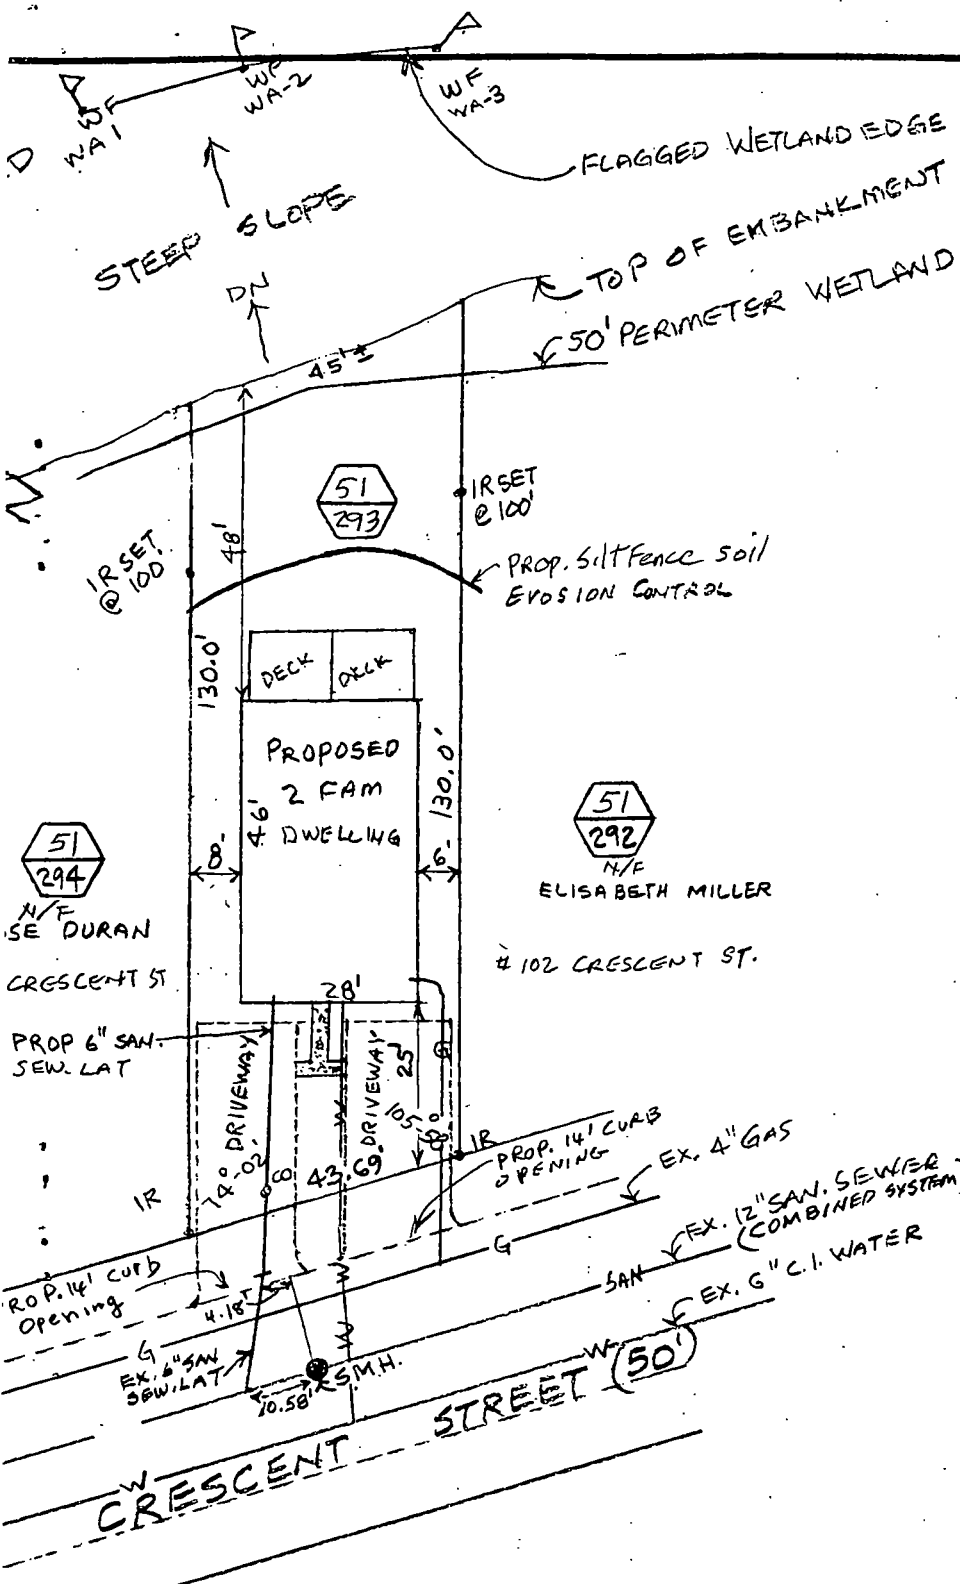 WF
WA 1
WF
WA-2
WF
WA-3
FLAGGED WETLAND EDGE
STEEP SLOPE
DN
TOP OF EMBANKMENT
50' PERIMETER WETLAND
45'±
51
293
IR SET
@ 100'
IR SET
@ 100'
48'
PROP. Silt Fence soil
EROSION CONTROL
130.0'
DECK
DECK
PROPOSED
2 FAM
DWELLING
46'
130.0'
8-
6-
51
294
N/F
SE DURAN
CRESCENT ST
51
292
N/F
ELISABETH MILLER
# 102 CRESCENT ST.
28'
PROP 6" SAN.
SEW. LAT
DRIVEWAY
DRIVEWAY
25'
74°-02'
CO
43.69
IR
IR
G
PROP. 14' CURB
OPENING
EX. 4" GAS
EX. 12" SAN. SEWER
(COMBINED SYSTEM
EX. 6" C.I. WATER
ROP. 14' Curb
Opening
4.18'
G
G
SAN
W
EX. 6" SAN
SEW. LAT
10.58'
S.M.H.
W
CRESCENT STREET (50')